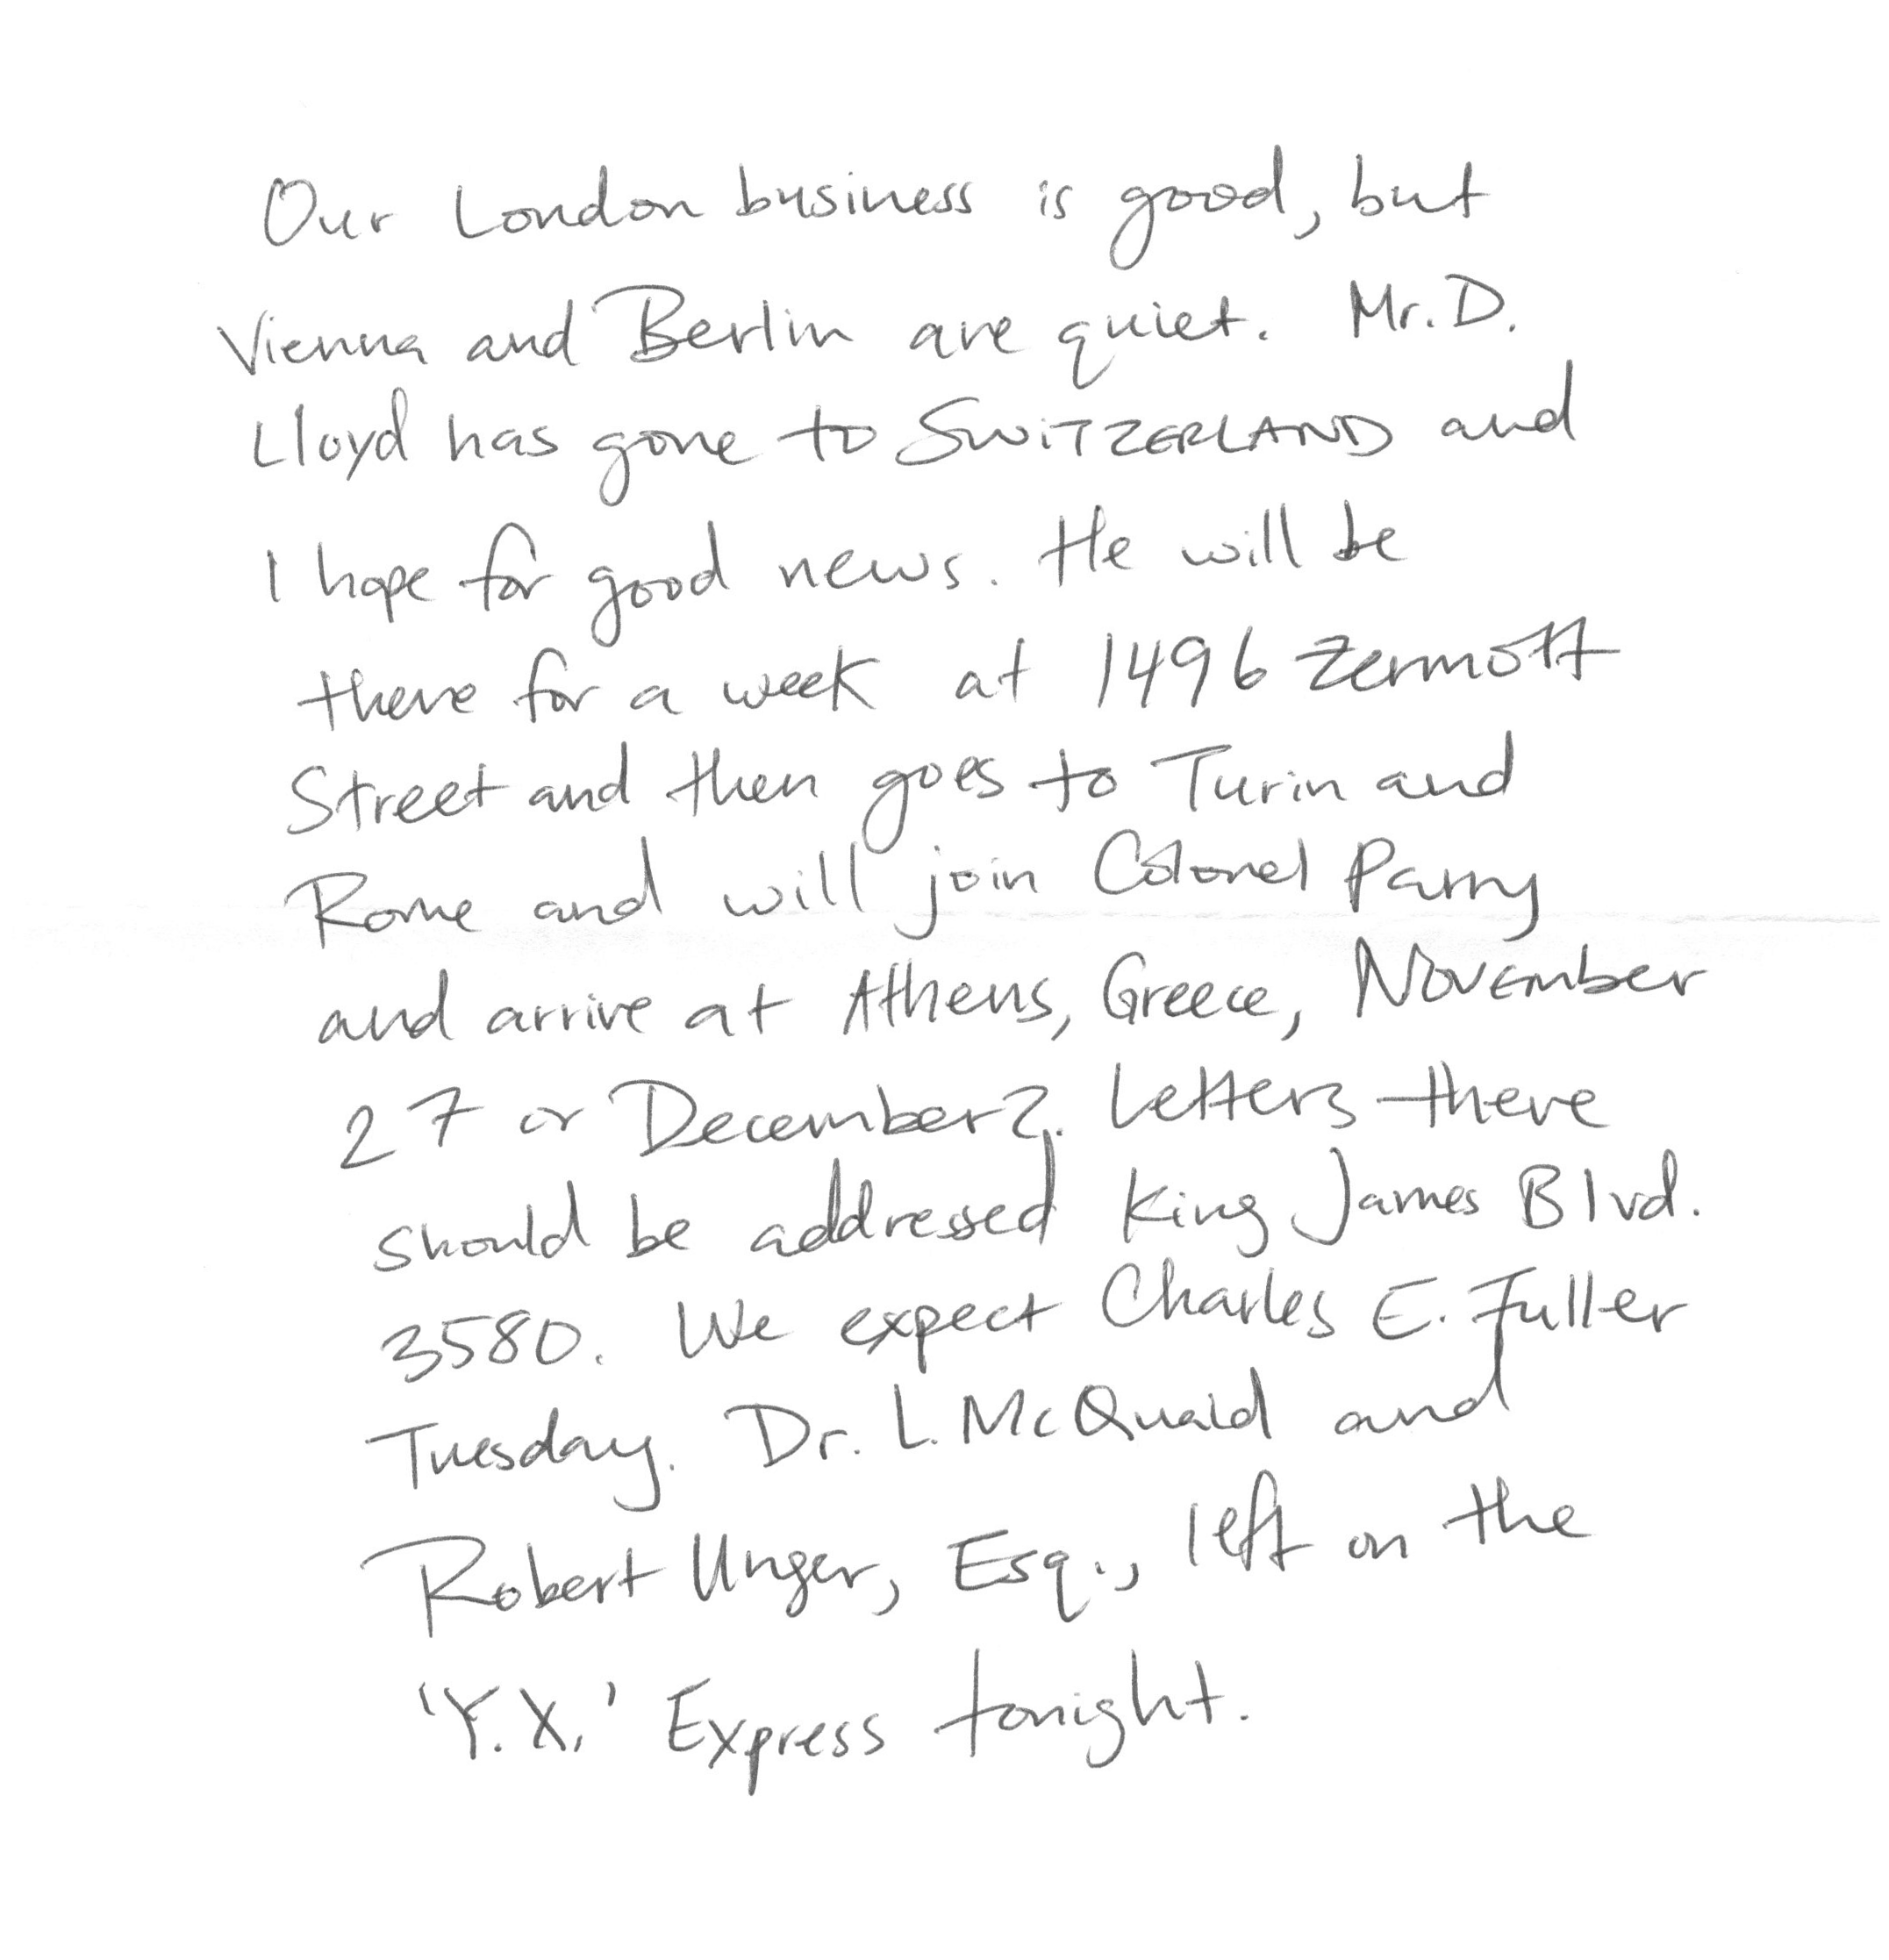 Our London business is good, but
Vienna and Berlin are quiet. Mr. D.
Lloyd has gone to SWiTZERLAND and
I hope for good news. He will be
there for a week at 1496 Zermott
Street and then goes to Turin and
Rome and will join Colonel Parry
and arrive at Athens, Greece, November
27 or December 2. Letters there
should be addressed King James Blvd.
3580. We expect Charles E. Fuller
Tuesday. Dr. L. McQuaid and
Robert Unger, Esq., left on the
'Y.X.' Express tonight.